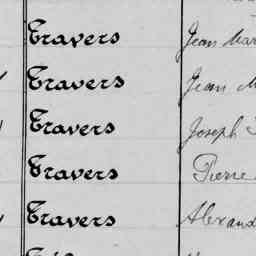 Travers Jean Mar
Travers Jean M
Travers Joseph
Travers Pierre
Travers Alexand